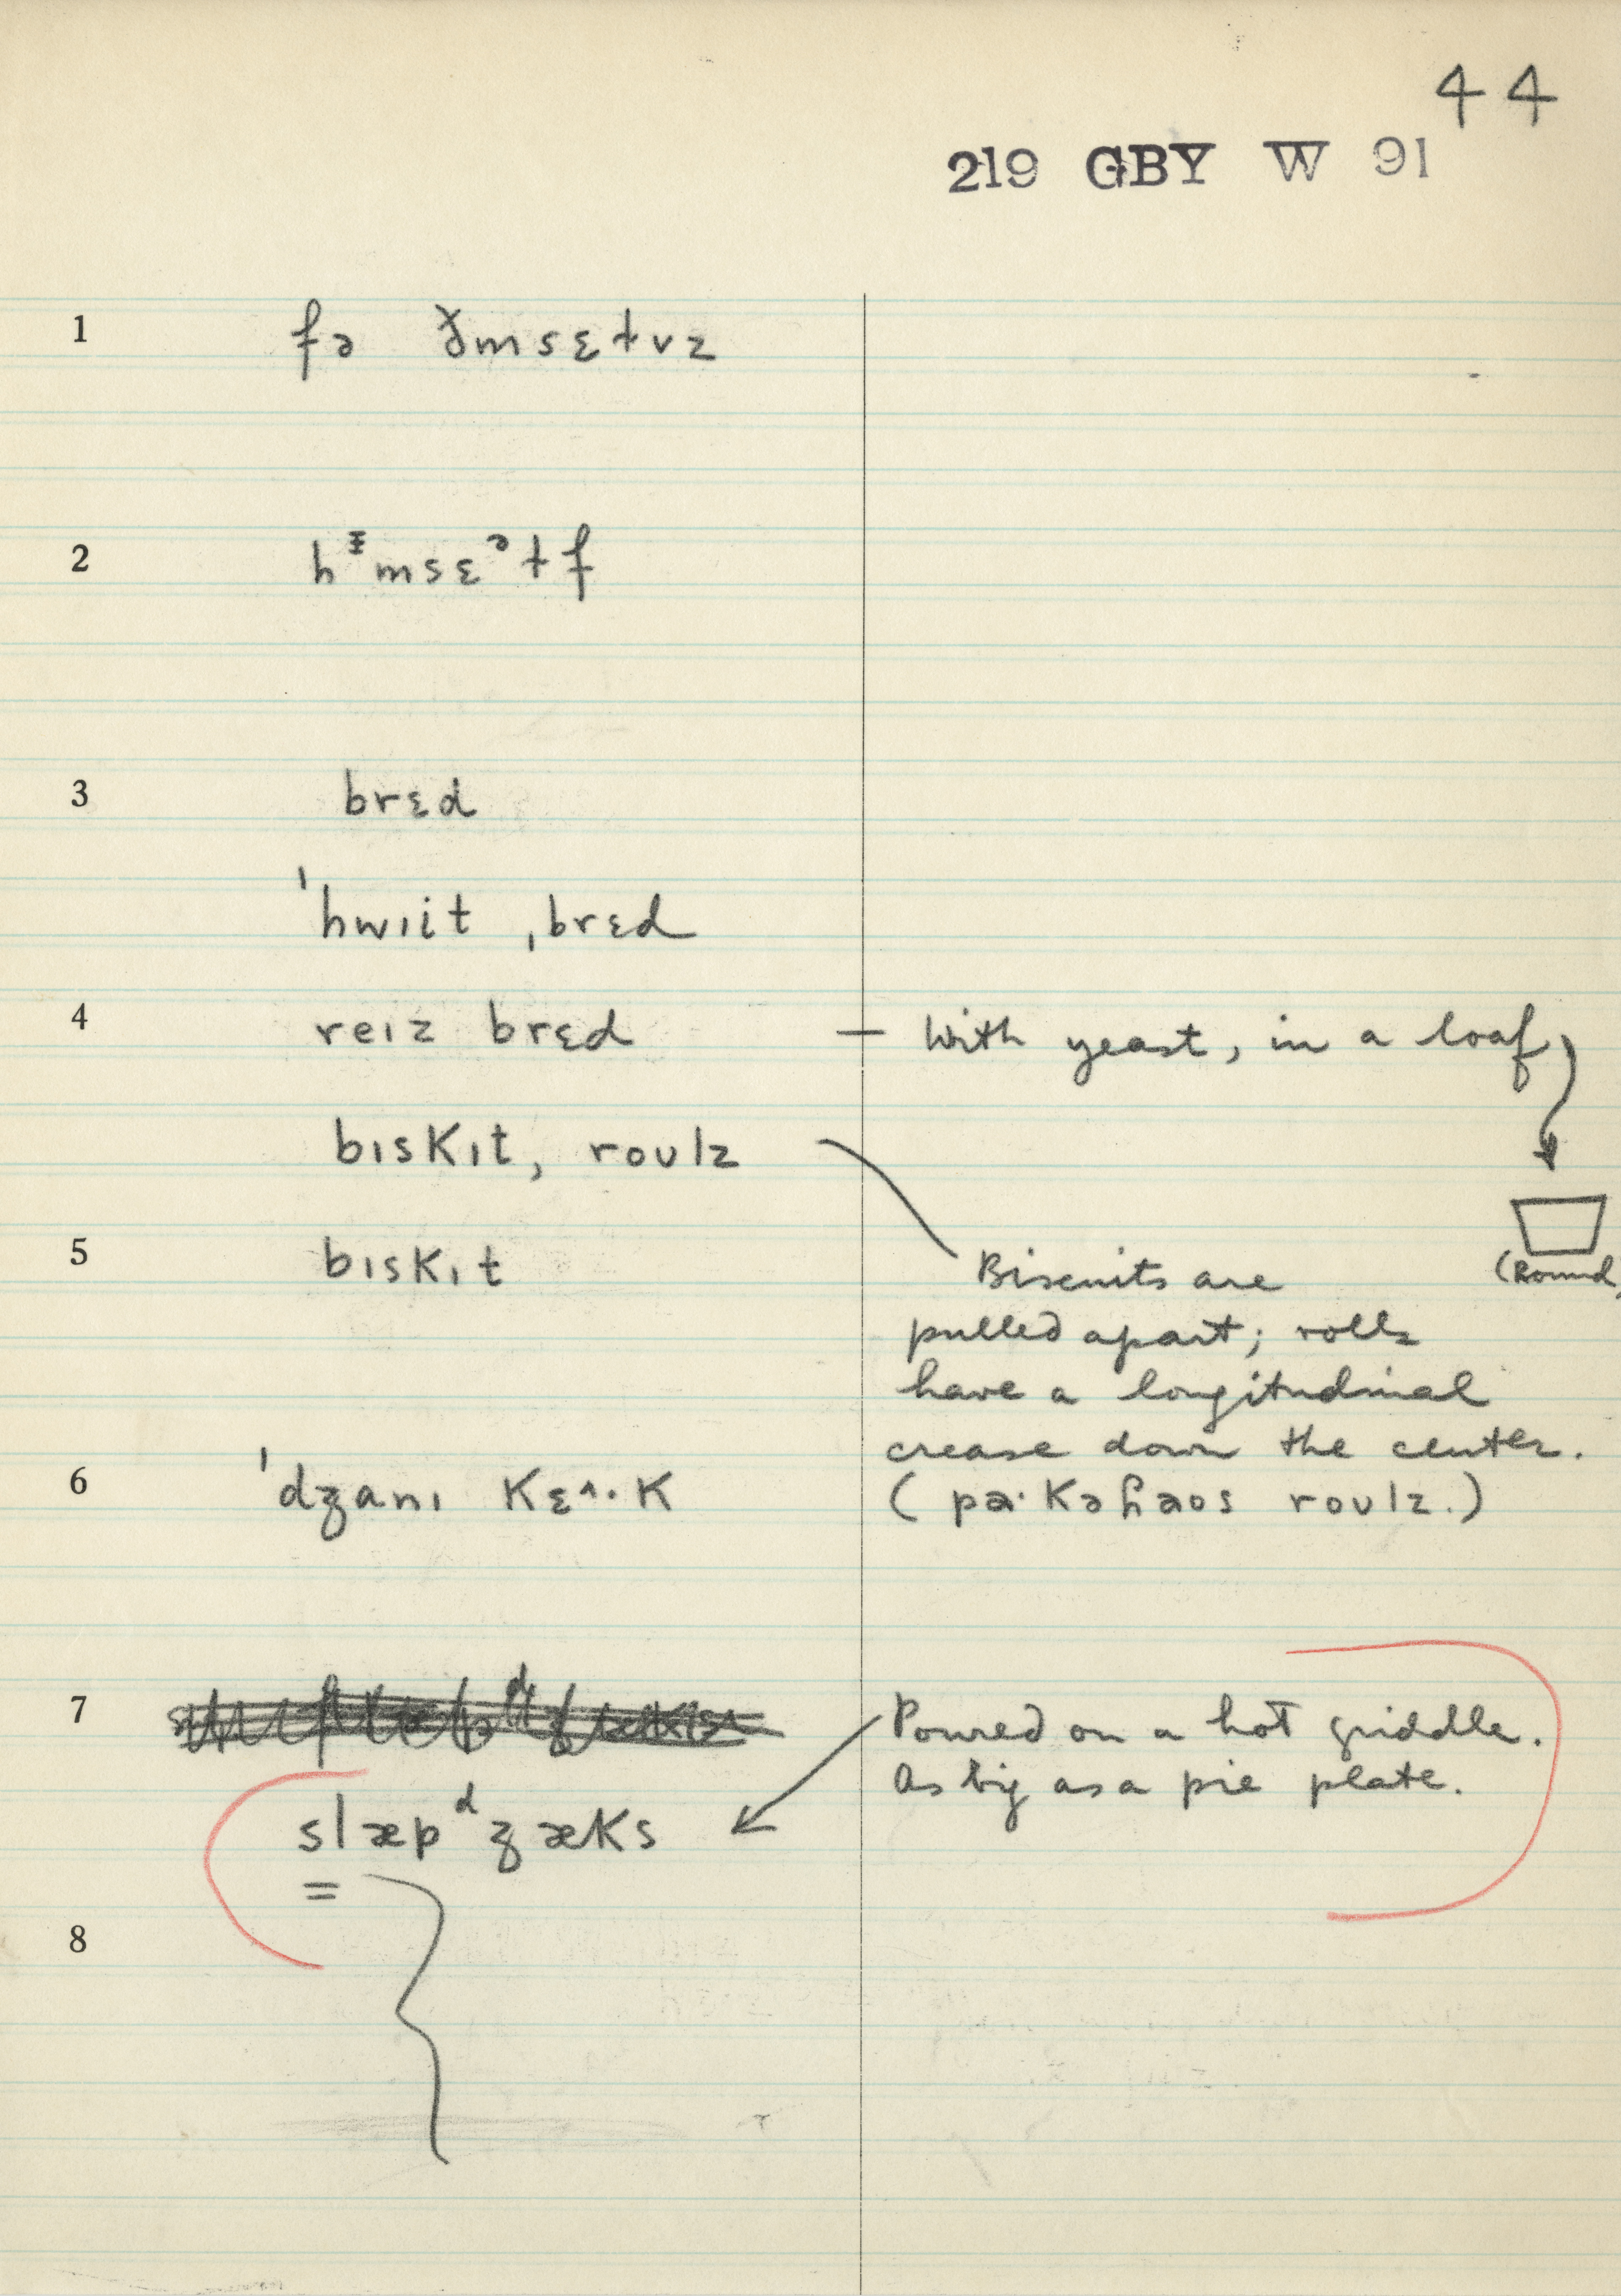 44
219 GBY W 91
1 fə ðmsɛɫvz
2 hᵻmsɛᵊɫf
3 brɛd
ˈhwɪit ˌbrɛd
4 reɪz brɛd — With yeast, in a loaf
bɪsKɪt, roʊlz
5 bɪsKɪt
(Round)
Biscuits are
pulled apart; rolls
have a longitudinal
crease down the center.
6 ˈdʒanɪ Kɛ^·K
(pa·Kəɦaos roʊlz.)
7
Poured on a hot griddle.
As big as a pie plate.
slæpᵈʒæKs
=
8